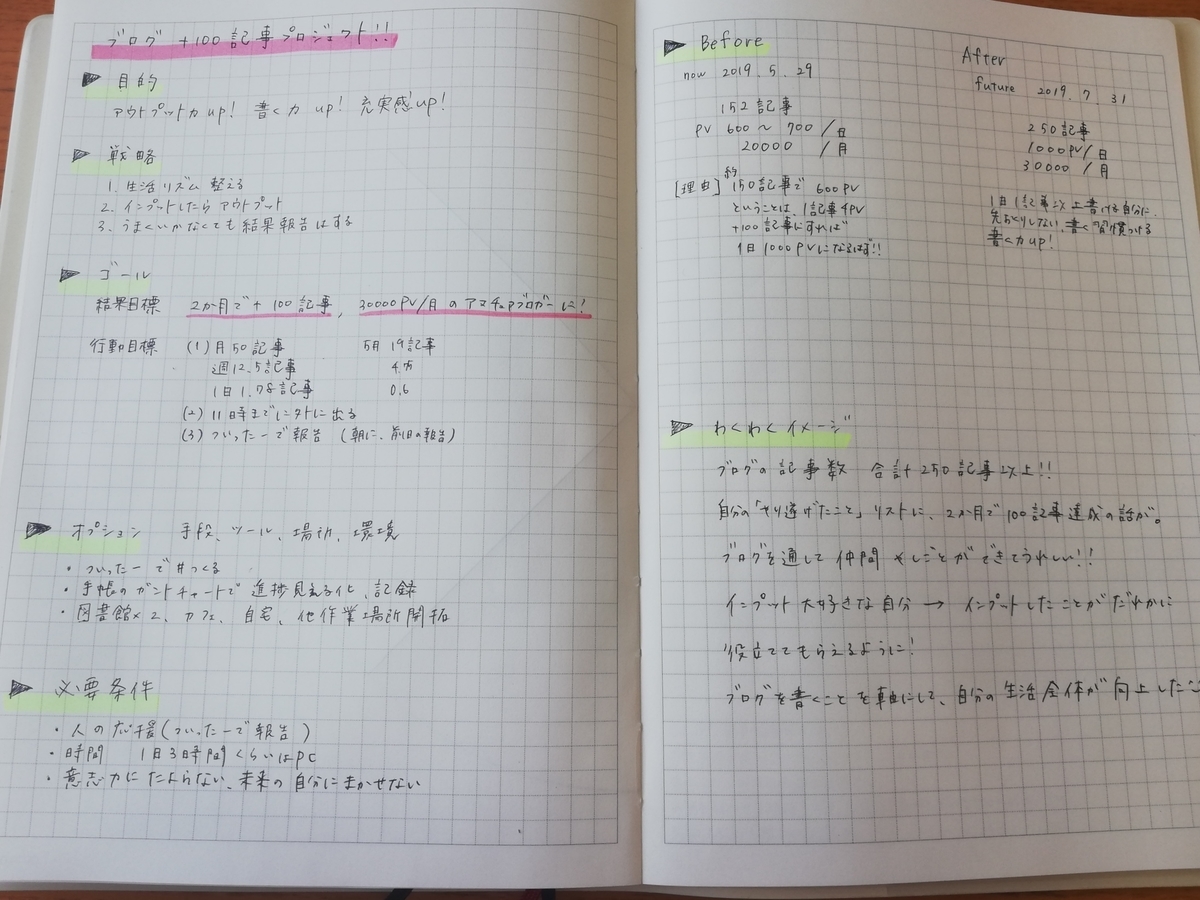 ブログ +100記事プロジェクト!!
目的
アウトプット力up! 書く力up! 充実感up!
戦略
1. 生活リズム 整える
2. インプットしたら アウトプット
3. うまくいかなくても 結果報告はする
ゴール
結果目標 2か月で + 100 記事, 30000 PV/月 の アマチュアブロガーに!
行動目標 (1) 月50記事 5月 19記事
週12.5記事
1日 1.78記事 0.6
(2) 11時までに外に出る
(3) ついったーで報告 (朝に、前日の報告)
オプション 手段、ツール、場所、環境
・ついったーで#つくる
・手帳のガントチャートで 進捗見える化、記録
・図書館×2、カフェ、自宅、他作業場所開拓
必要条件
・人の応援(ついったーで報告)
・時間 1日3時間くらいはPC
・意志力にたよらない、未来の自分にまかせない
Before
now 2019. 5. 29
152記事
PV 600 〜 700 /日
20000 /月
[理由] 約150記事で 600PV
ということは、1記事4PV
+100記事にすれば
1日1000PVになるはず!!
After
future 2019. 7. 31
250記事
1000PV/日
30000 /月
1日1記事以上書ける自分に、
先おくりしない、書く習慣つける
書く力up!
わくわくイメージ
ブログの記事数 合計 250記事以上!!
自分の「やり遂げたこと」リストに、2か月で100記事達成の話が。
ブログを通して 仲間 やしごとができてうれしい!!
インプット大好きな自分 → インプットしたことがだれかに
役立ててもらえるように!
ブログを書くことを軸にして、自分の生活全体が向上したこ